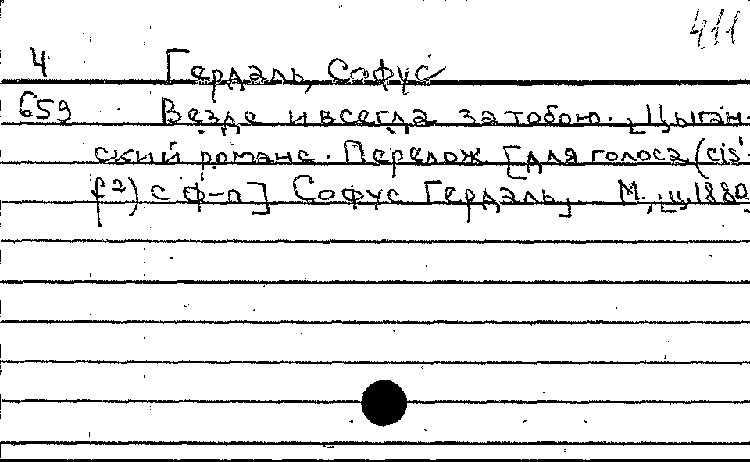 411
4 Гердаль, Софус
659 Везде и всегда за тобою. Цыган-
ский романс. Перелож. [для голоса (cis'
f²) с ф-п] Софус Гердаль. М., ц. 1880